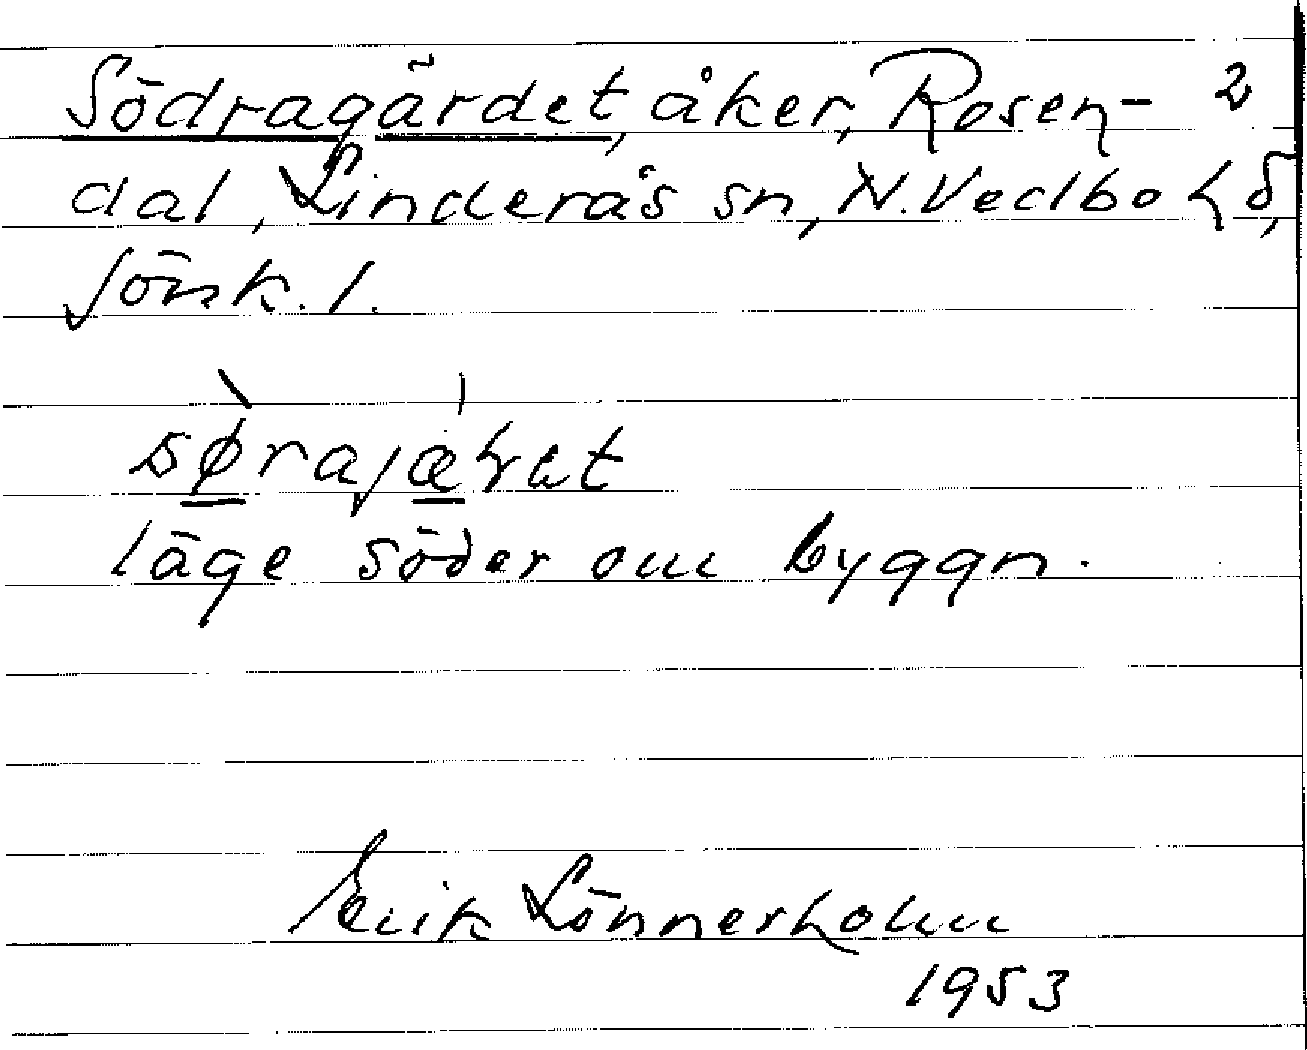 Södragärdet, åker, Rosen- 2
dal, Linderås sn, N. Vedbo hd,
Jönk. l.
läge söder om byggn.
Erik Lönnerholm
1953